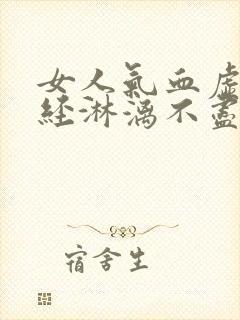 女人氣血虛
經淋漓不盡
宿舍生